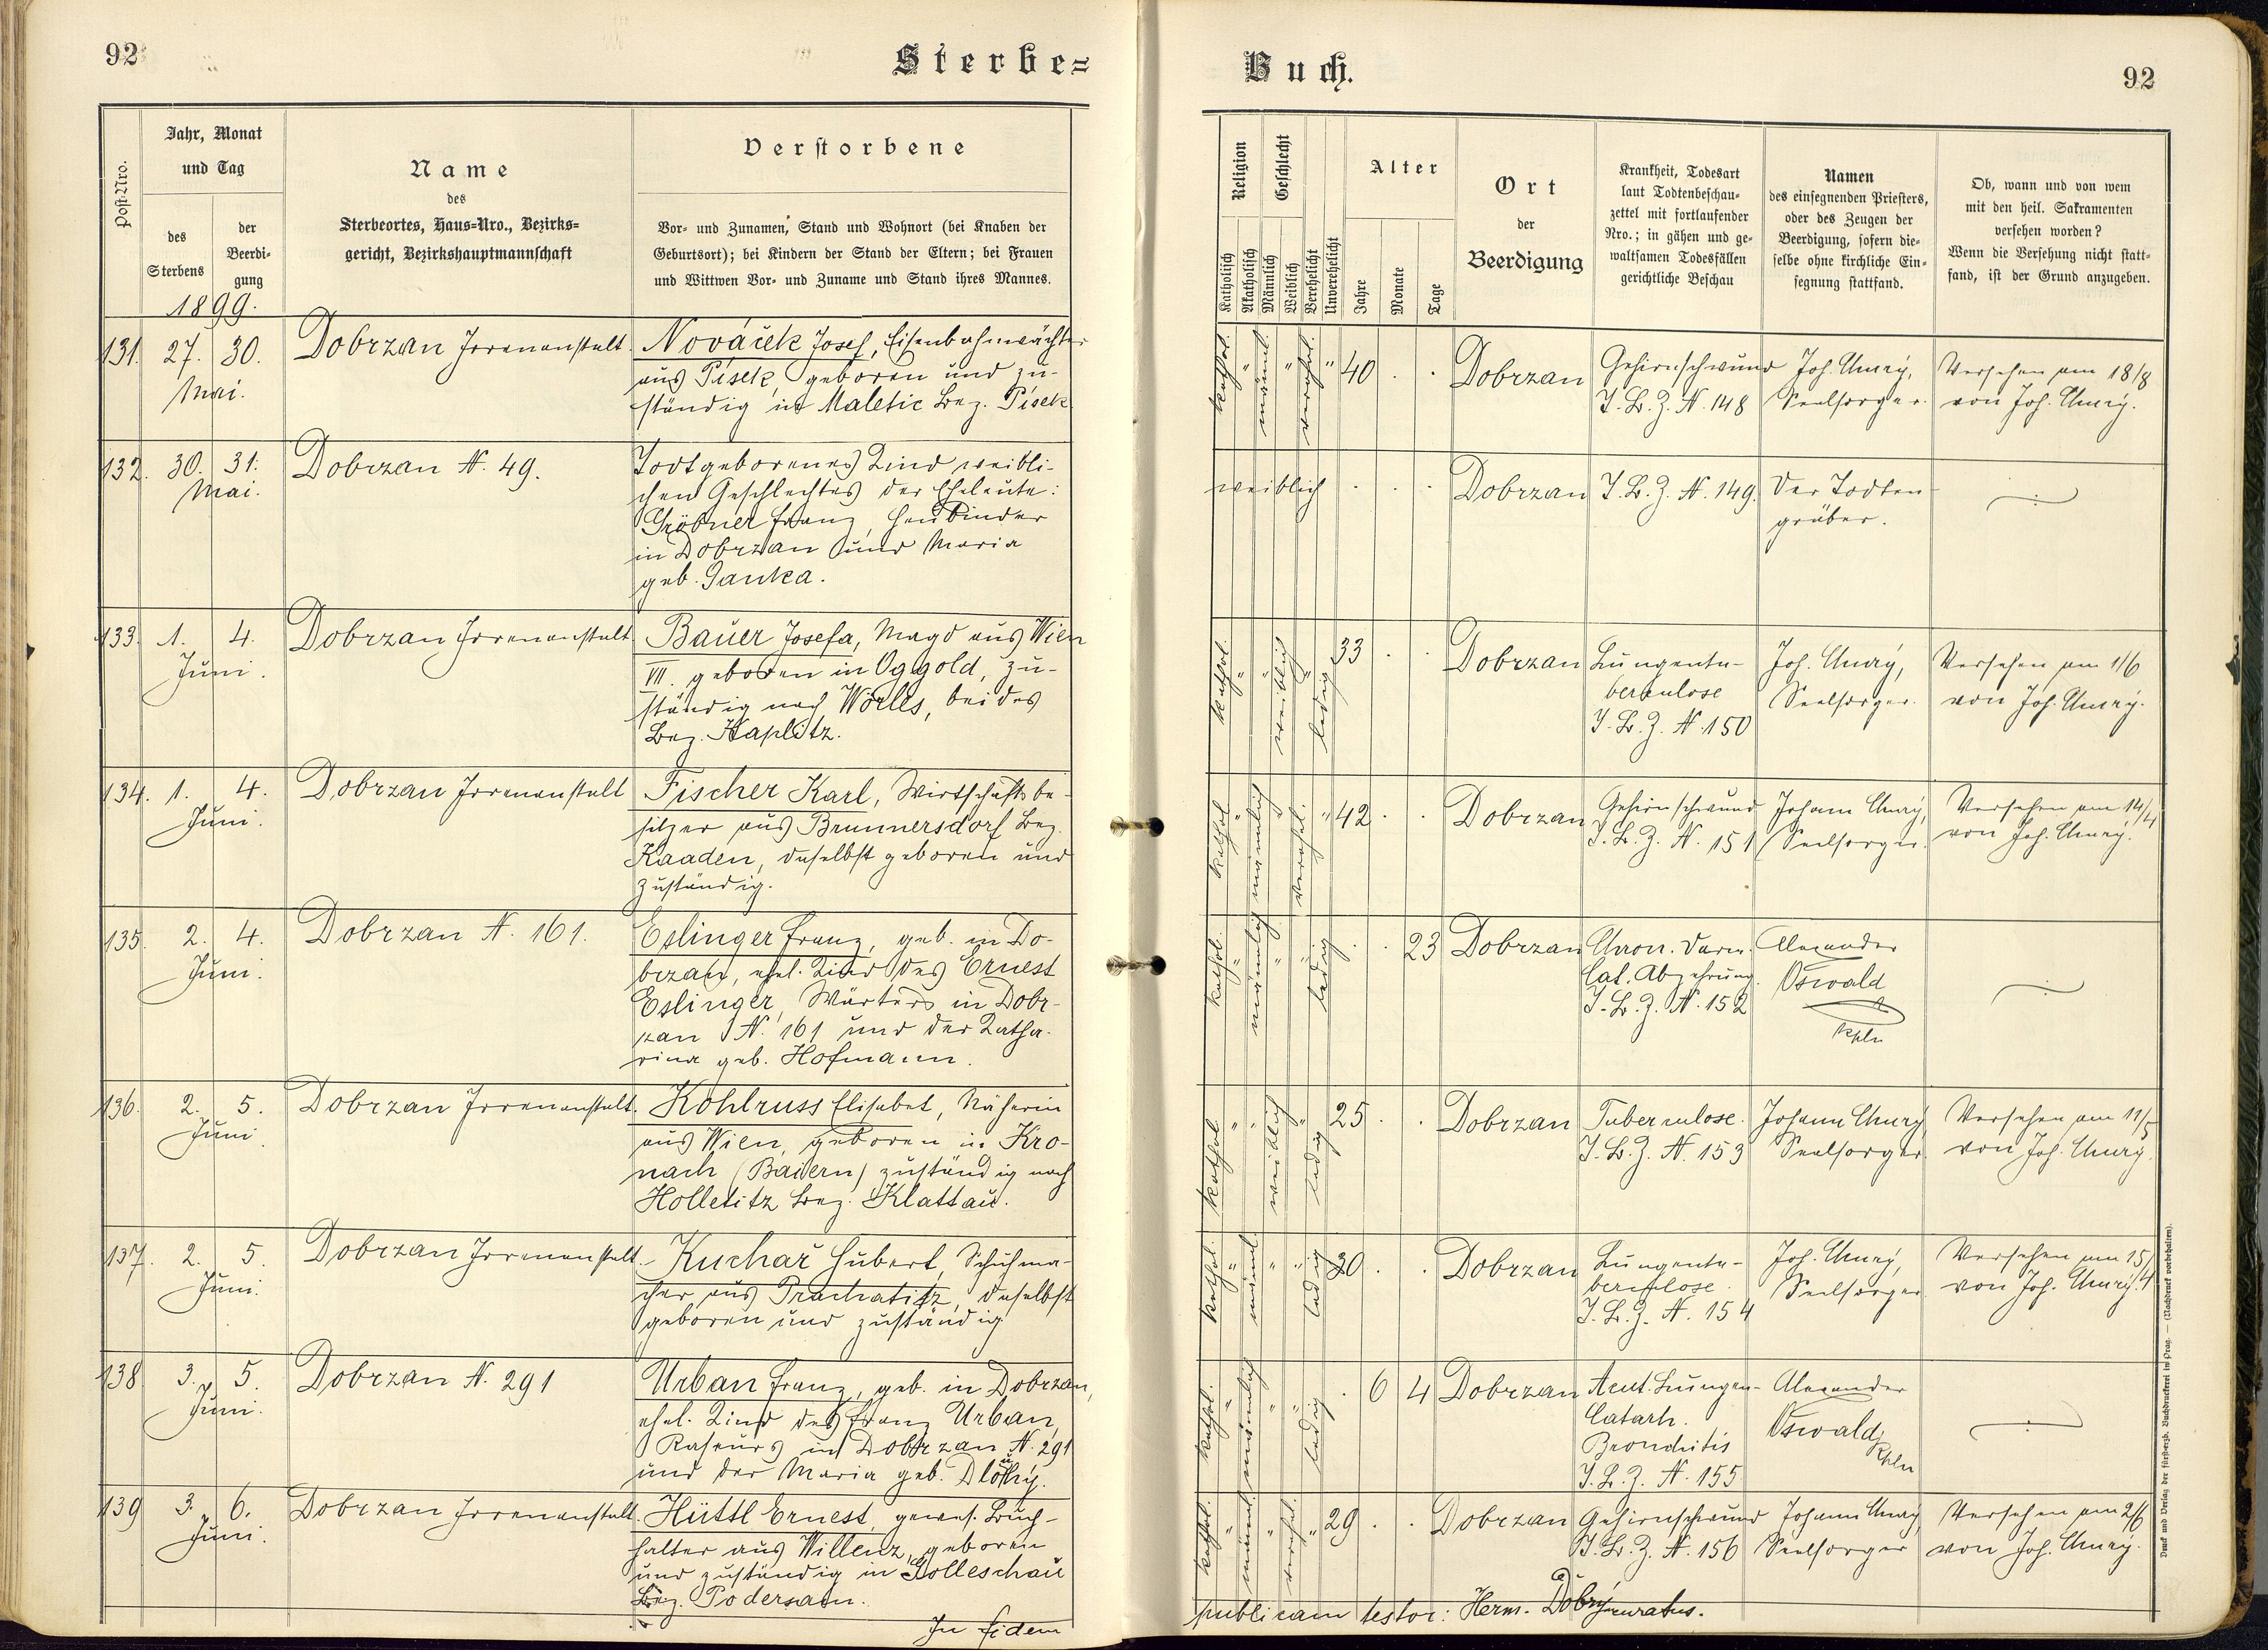 92
Sterbe=
Post-Nro.
Jahr, Monat
und Tag
des
Sterbens
der
Beerdi-
gung
1899.
Name
des
Sterbeortes, Haus-Nro., Bezirks-
gericht, Bezirkshauptmannschaft
Verstorbene
Vor- und Zunamen, Stand und Wohnort (bei Knaben der
Geburtsort); bei Kindern der Stand der Eltern; bei Frauen
und Wittwen Vor- und Zuname und Stand ihres Mannes.
131. 27. 30. Dobrzan Irrenanstalt. Nováček Josef, Eisenbahnwächter
Mai. aus Písek, geboren und zu-
ständig in Maletic Bez. Písek
132. 30. 31. Dobrzan N. 49. Todtgeborenes Kind weibli-
Mai. chen Geschlechtes der Eheleute:
Gröbner Franz,
in Dobrzan und Maria
geb. Janka.
133. 1. 4. Dobrzan Irrenanstalt Bauer Josefa, Magd aus Wien
Juni. VII. geboren in Oggold, zu-
ständig nach Wörles, beides
Bez. Kaplitz.
134. 1. 4. Dobrzan Irrenanstalt Fischer Karl, Wirtschaftsbe-
Juni. sitzer aus Brunnersdorf Bez.
Kaaden, daselbst geboren und
zuständig.
135. 2. 4. Dobrzan N. 161. Eslinger Franz, geb. in Do-
Juni. brzan, ehel. Kind des Ernest
Eslinger, Wärters in Dobr-
zan N. 161 und der Katha-
rina geb. Hofmann.
136. 2. 5. Dobrzan Irrenanstalt. Kohlruss Elisabet, Näherin
Juni. aus Wien, geboren in Kro-
nach (Baiern) zuständig nach
Holletitz Bez. Klattau.
137. 2. 5. Dobrzan Irrenanstalt. Kuchař Hubert, Schuhma-
Juni. cher aus Prachatitz, daselbst
geboren und zuständig
138 3. 5. Dobrzan N. 291 Urban Franz, geb. in Dobrzan,
Juni. ehel. Kind des Franz Urban,
Raseurs in Dobrzan N. 291
und der Maria geb.
139 3. 6. Dobrzan Irrenanstalt. Hüttl Ernest, gewes. Buch-
Juni. halter aus Willenz, geboren
und zuständig in Kolleschau
Bez. Podersam.
In fidem
Buch.
92
Religion
Katholisch
Akatholisch
Geschlecht
Männlich
Weiblich
Verehelicht
Unverehelicht
Alter
Jahre
Monate
Tage
Ort
der
Beerdigung
Krankheit, Todesart
laut Todtenbeschau-
zettel mit fortlaufender
Nro.; in gähen und ge-
waltsamen Todesfällen
gerichtliche Beschau
Namen
des einsegnenden Priesters,
oder des Zeugen der
Beerdigung, sofern die-
selbe ohne kirchliche Ein-
segnung stattfand.
Ob, wann und von wem
mit den heil. Sakramenten
versehen worden?
Wenn die Versehung nicht statt-
fand, ist der Grund anzugeben.
kathol. " männl. " verehel. " 40 . . Dobrzan Gehirnschwund Joh. Versehen am 18/8
T. B. Z. N. 148 Seelsorger. von Joh.
weiblich . . . Dobrzan T. B. Z. N. 149. Der Todten-
gräber.
kathol. " " weiblich " ledig 33 . . Dobrzan Lungentu- Joh. Versehen am 1/6
berculose Seelsorger. von Joh.
T. B. Z. N. 150
kathol. " männlich " verehel. " 42 . . Dobrzan Gehirnschwund Johann Versehen am 14/4
T. B. Z. N. 151 Seelsorger. von Joh.
kathol. " männlich " " ledig . . 23 Dobrzan Chron. Darm- Alexander
Cat. Abzehrung Oswald
T. B. Z. N. 152 Kpln
kathol. " " weiblich " ledig 25 . . Dobrzan Tuberculose. Johann Versehen am 11/5
T. B. Z. N. 153 Seelsorger. von Joh.
kathol. " männl. " " ledig 30 . . Dobrzan Lungentu- Joh. Versehen am 15/4
berculose. Seelsorger von Joh.
T. B. Z. N. 154
kathol. " männlich " " ledig . 6 4 Dobrzan Acut. Lungen- Alexander
Catarh. Oswald
Bronchitis Kpln
T. B. Z. N. 155
kathol. " männl. " verehel. " 29 . . Dobrzan Gehirnschwund Johann Versehen am 2/6
T. B. Z. N. 156 Seelsorger von Joh.
publicam testor: Herm. Dobrý curatus.
Druck und Verlag der fürsterzb. Buchdruckerei in Prag. — (Nachdruck vorbehalten).